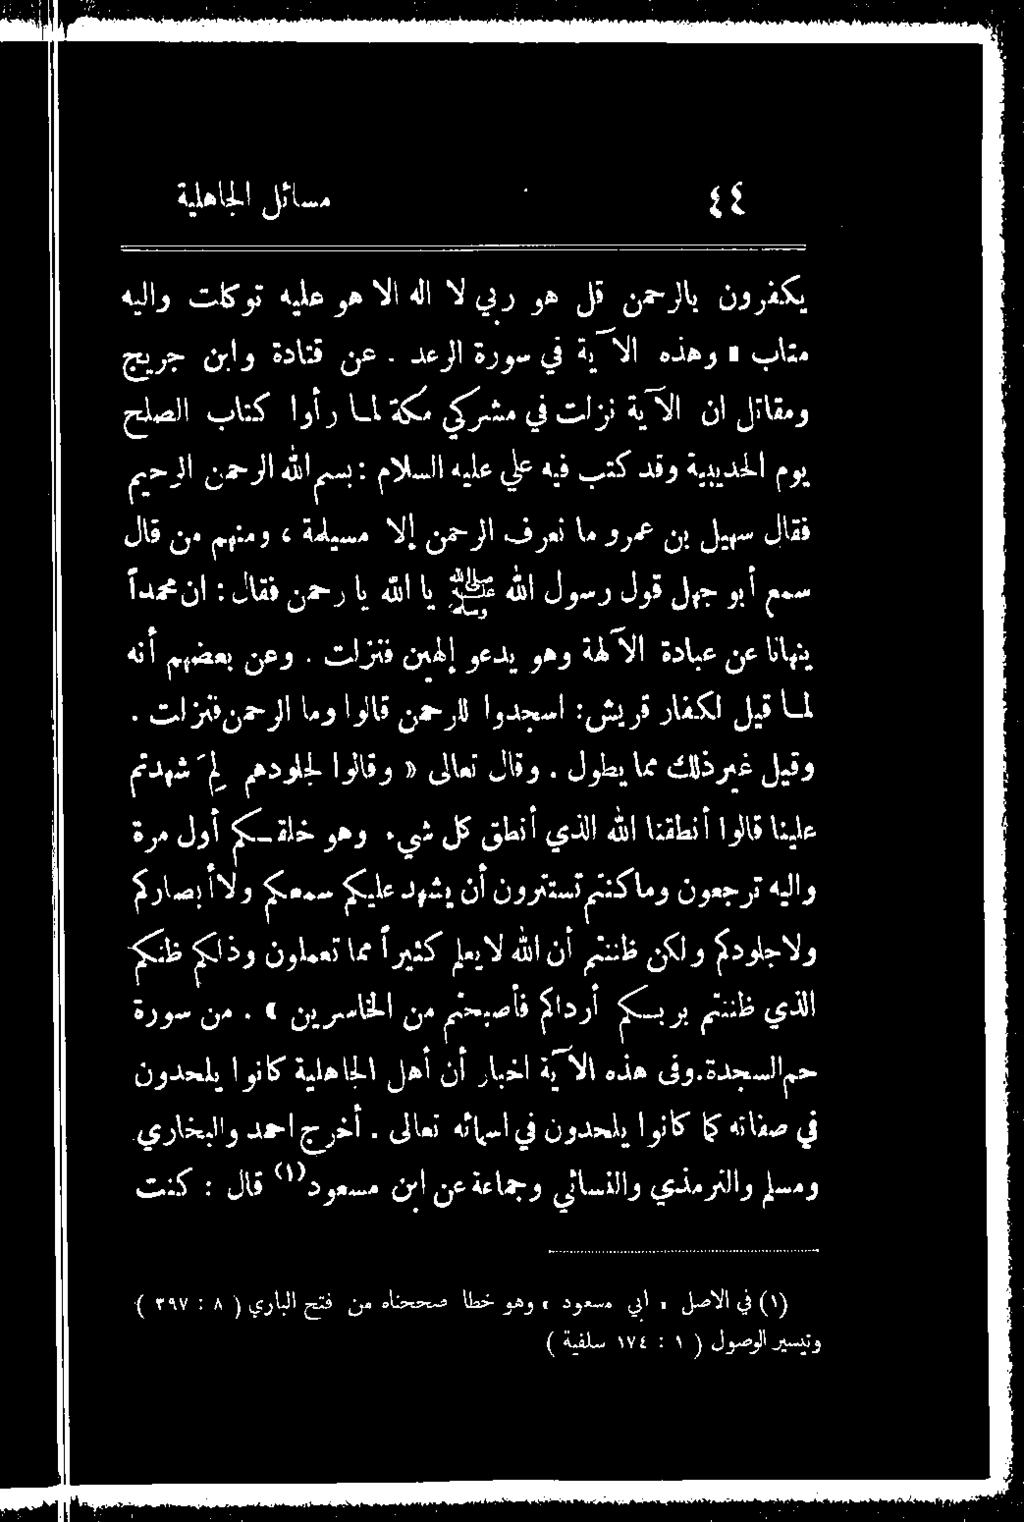 ٤٤ مسائل الجاهلية
يكفرون بالرحمن قل هو ربي لا اله الا هو عليه توكلت واليه
متاب » وهذه الآية في سورة الرعد . عن قتادة وابن جريج
ومقاتل ان الآية نزلت في مشركي مكة لمـا رأوا كتاب الصلح
يوم الحديبية وقد كتب فيه علي عليه السلام : بسم الله الرحمن الرحيم
فقال سهيل بن عمرو ما نعرف الرحمن إلا مسيلمة ، ومنهم من قال
سمع أبو جهل قول رسول الله ﷺ يا الله يا رحمن فقال : ان محمداً
ينهانا عن عبادة الآلهة وهو يدعو إلهين فنزلت . وعن بعضهم أنه
لمـا قيل لكفار قريش: اسجدوا للرحمن قالوا وما الرحمن فنزلت .
وقيل غير ذلك مما يطول . وقال تعالى « وقالوا لجلودهم لِمَ شهدتم
علينا قالوا أنطقنا الله الذي أنطق كل شيء وهو خلقـكم أول مرة
واليه ترجعون وما كنتم تستترون أن يشهد عليكم سمعكم ولا أبصاركم
ولا جلودكم ولكن ظننتم أن الله لا يعلم كثيراً مما تعملون وذلكم ظنكم
الذي ظننتم بربـكم أرداكم فأصبحتم من الخاسرين » . من سورة
حم السجدة . وفى هذه الآية اخبار أن أهل الجاهلية كانوا يلحدون
في صفاته كما كانوا يلحدون في اسمائه تعالى . أخرج احمد والبخاري
ومسلم والترمذي والنسائي وجماعة عن ابن مسعود (١) قال : كنت
(١) في الاصل « ابي مسعود » وهو خطا صححناه من فتح الباري ( ٨ : ٣٩٧ )
وتيسير الوصول ( ١ : ١٧٤ سلفية )